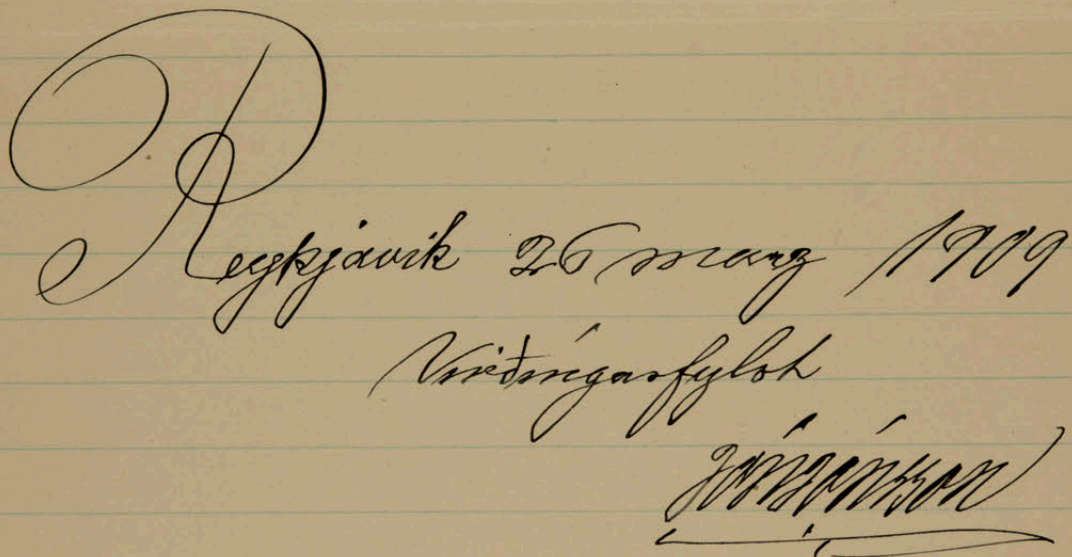 Reykjavik 26 marz 1909
Virðingarfylst
Jón Jónsson